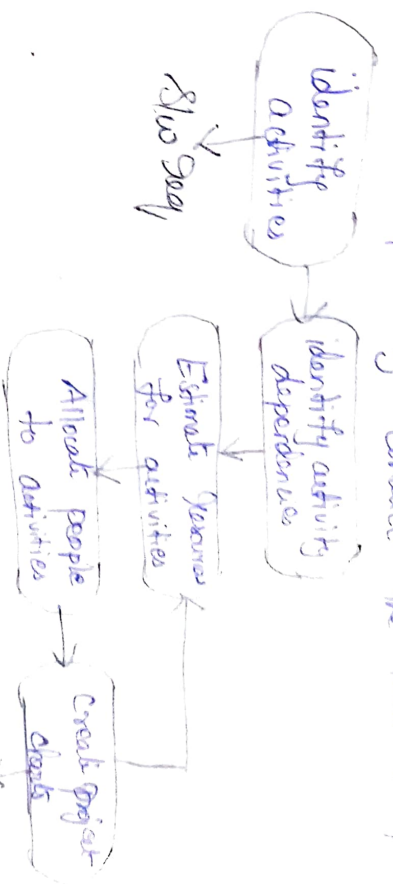 identify
activities
S/w req
identify activity
dependencies
Estimate resources
for activities
Allocate people
to activities
Create project
charts